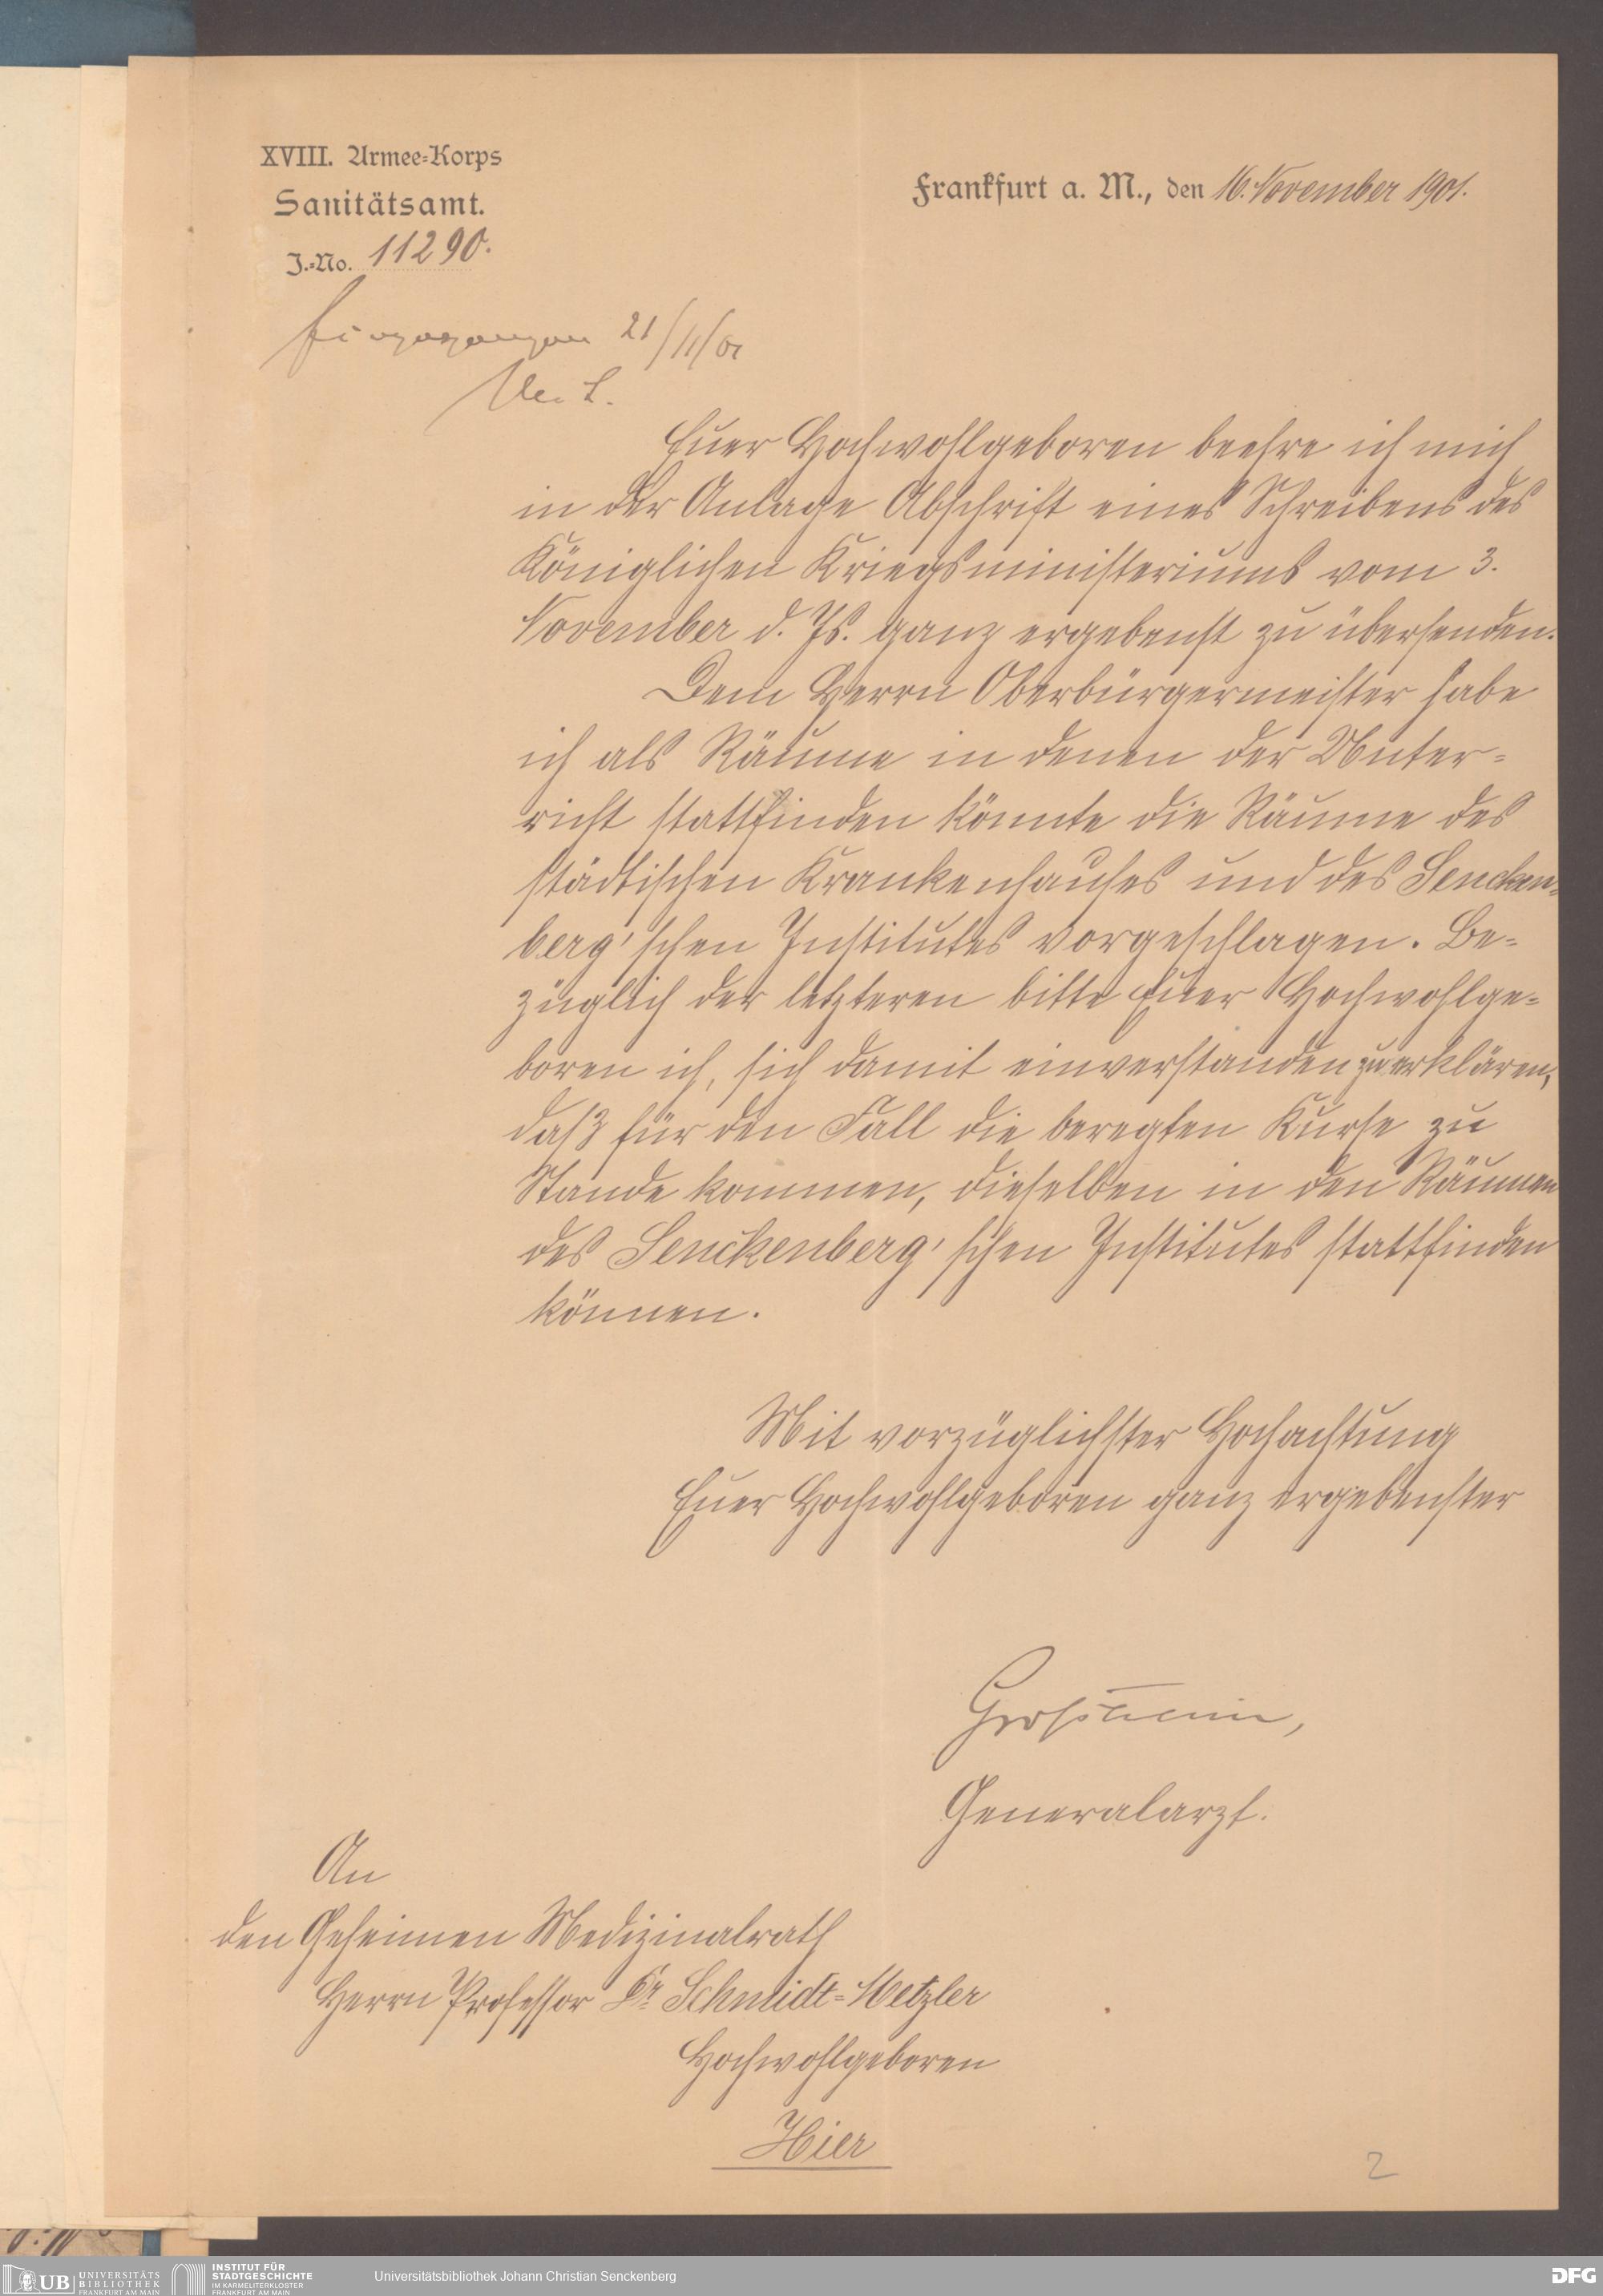 XVIII. Armee-Korps
Sanitätsamt.
J.-No. 11290.
Frankfurt a. M., den 16. November 1901.
Eingegangen 21/11/01
Euer Hochwohlgeboren beehre ich mich
in der Anlage Abschrift eines Schreibens des
Königlichen Kriegsministeriums vom 3.
November d. Js. ganz ergebenst zu übersenden.
Dem Herrn Oberbürgermeister habe
ich als Räume in denen der Unter-
richt stattfinden könnte die Räume des
städtischen Krankenhauses und des Sencken-
berg'schen Institutes vorgeschlagen. Be-
züglich der letzteren bitte Euer Hochwohlge-
boren ich, sich damit einverstanden zu erklären,
daß für den Fall die beregten Kurse zu
Stande kommen, dieselben in den Räumen
des Senckenberg'schen Institutes stattfinden
können.
Mit vorzüglichster Hochachtung
Euer Hochwohlgeboren ganz ergebenster
Großheim,
Generalarzt.
An
den Geheimen Medizinalrath
Herrn Professor Dr Schmidt-Metzler
Hochwohlgeboren
Hier
2
UB UNIVERSITÄTS
BIBLIOTHEK
FRANKFURT AM MAIN
INSTITUT FÜR
STADTGESCHICHTE
IM KARMELITERKLOSTER
FRANKFURT AM MAIN
Universitätsbibliothek Johann Christian Senckenberg
DFG